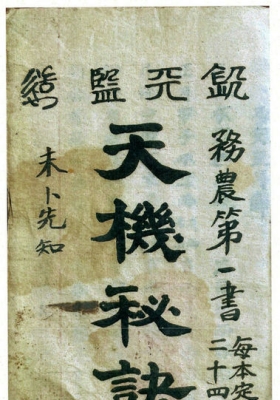 監
務農第一書
每本定
二十四
天機秘訣
未卜先知